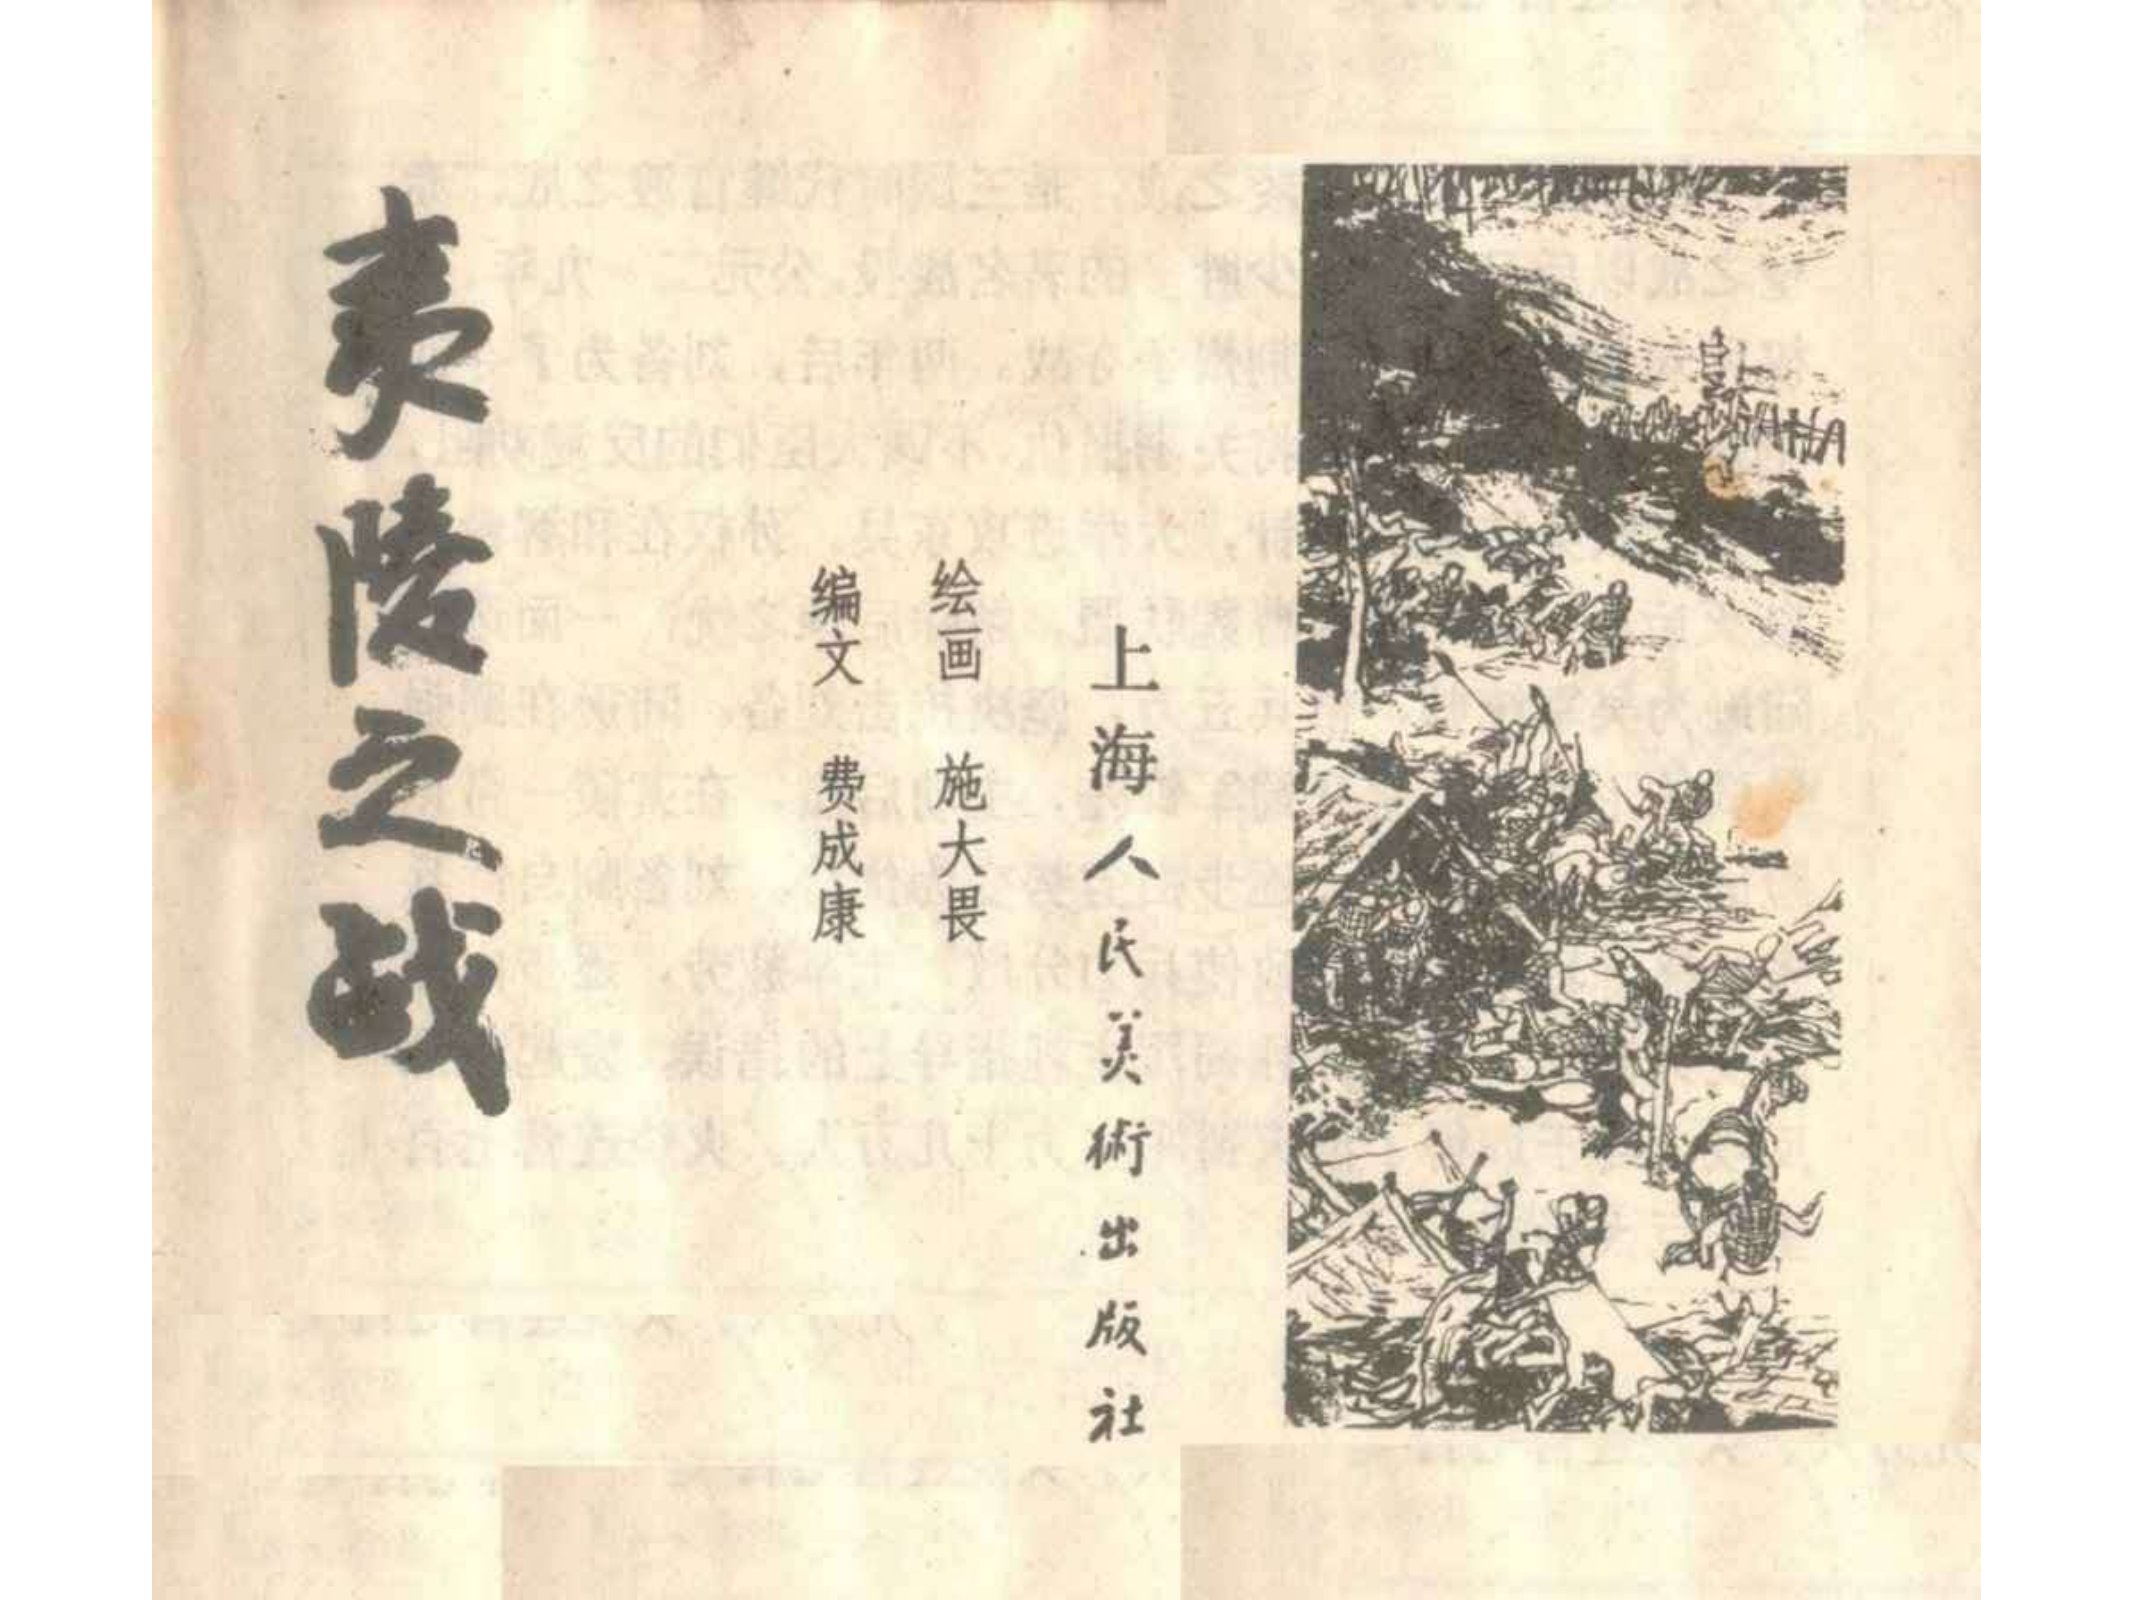 夷陵之战
编文 费成康
绘画 施大畏
上海人民美術出版社